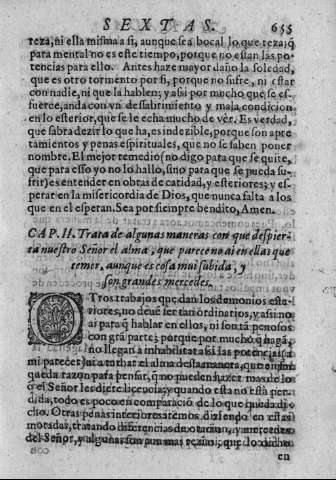 SEXTAS. 655
reza, ni ella misma a si, aunque sea bocal lo que reza; q̃
para mental no es este tiempo, porque no estan las po-
tencias para ello. Antes haze mayor daño la soledad,
que es otro tormento por si, porque no sufre, ni estar
con nadie, ni que la hablem; y assi por mucho que se es-
fuerce, anda con vn desabrimiento y mala condicion
en lo esterior, que se le echa mucho de ver. Es verdad,
que sabra dezir lo que ha, es indezible, porque son apre-
tamientos y penas espirituales, que no se saben poner
nombre. El mejor remedio (no digo para que se quite,
que para esso yo no lo hallo, sino para que se pueda su-
frir) es entender en obras de caridad, y esteriores; y es-
perar en la misericordia de Dios, que nunca falta a los
que en el esperan. Sea por siempre bendito, Amen.
CAP. II. Trata de algunas maneras con que despier-
ta nuestro Señor el alma, que parece no ai en ellas que
temer, aunque es cosa mui subida, y
son grandes mercedes.
OTros trabajos que dan los demonios este-
riores, no deue ser tan ordinarios, y assi no
ai para q̃ hablar en ellos, ni son tã penosos
con grã parte; porque por mucho q̃ hagã,
no llegan a inhabilitar assi las potencias, a
mi parecer, ni a turbar el alma desta manera, que en fin
queda razon para pensar, q̃ no pueden hazer mas de lo
q̃ el Señor les diere licecia; y quando esta no està per-
dida, todo es poco en comparaciõ de lo que queda di-
cho. Otras penas interiores iremos diziendo en estas
moradas, tratando diferencias de oracion, y mercedes
del Señor, y algunas son aun mas rezias, que lo dicho
en